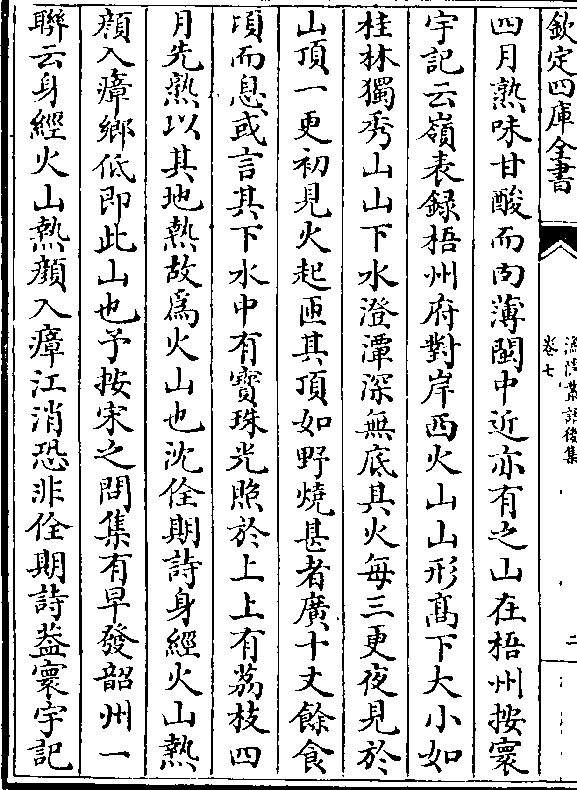 欽定四庫全書
卷七
漁隱叢話後集
二
四月熟味甘酸而肉薄閩中近亦有之山在梧州按寰
宇記云嶺表録梧州府對岸西火山山形髙下大小如
桂林獨秀山山下水澄潭深無底其火每三更夜見於
山頂一更初見火起匝其頂如野燒甚者廣十丈餘食
頃而息或言其下水中有寶珠光照於上上有荔枝四
月先熟以其地熱故爲火山也沈佺期詩身經火山熱
顔入瘴鄉低即此山也予按宋之問集有早發韶州一
聯云身經火山熱顔入瘴江消恐非佺期詩葢寰宇記